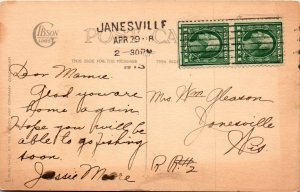 GIBSON
LINES
JANESVILLE
APR 29 8
2-30PM
WIS
POST CARD
THIS SIDE FOR THE MESSAGE
Dear Mamie
Glad you are
home again
Hope you will be
able to go fishing
soon.
Jessie Moore
Mrs Wm Gleason
Janesville
Wis.
R R#2